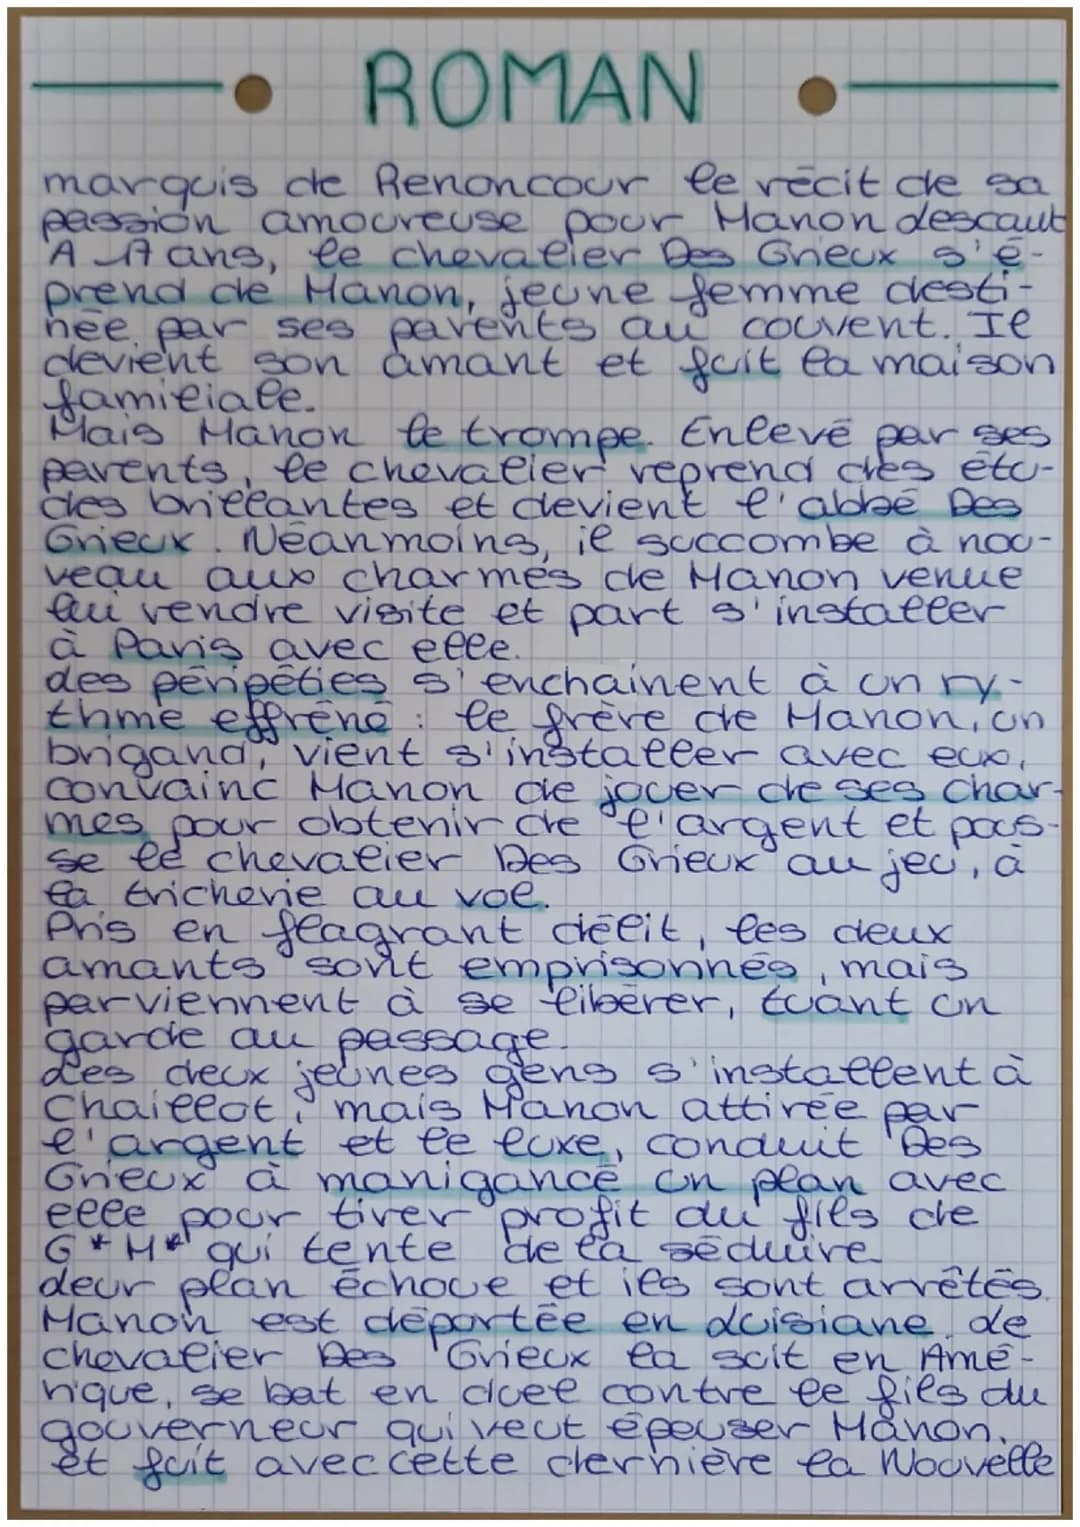 ROMAN
marquis de Renoncour le récit de sa
passion amoureuse pour Manon Lescaut
A 17 ans, le chevalier Des Grieux s'é-
prend de Manon, jeune femme desti-
née par ses parents au couvent. Il
devient son amant et fuit la maison
familiale.
Mais Manon le trompe. Enlevé par ses
parents, le chevalier reprend des étu-
des brillantes et devient l'abbé Des
Grieux. Néanmoins, il succombe à nou-
veau aux charmes de Manon venue
lui rendre visite et part s'installer
à Paris avec elle.
des péripéties s'enchainent à un ry-
thme effréné : le frère de Manon, un
brigand, vient s'installer avec eux,
convainc Manon de jouer de ses char-
mes pour obtenir de l'argent et pous-
se le chevalier Des Grieux au jeu, à
la tricherie au vol.
Pris en flagrant délit, les deux
amants sont emprisonnés, mais
parviennent à se libérer, tuant un
garde au passage.
Les deux jeunes gens s'installent à
Chaillot, mais Manon attirée par
l'argent et le luxe, conduit Des
Grieux à manigancé un plan avec
elle pour tirer profit du fils de
G*M* qui tente de la séduire
Leur plan échoue et ils sont arrêtés.
Manon est déportée en Louisiane. Le
chevalier Des Grieux la suit en Amé-
rique, se bat en duel contre le fils du
gouverneur qui veut épouser Manon,
et fuit avec cette dernière la Nouvelle